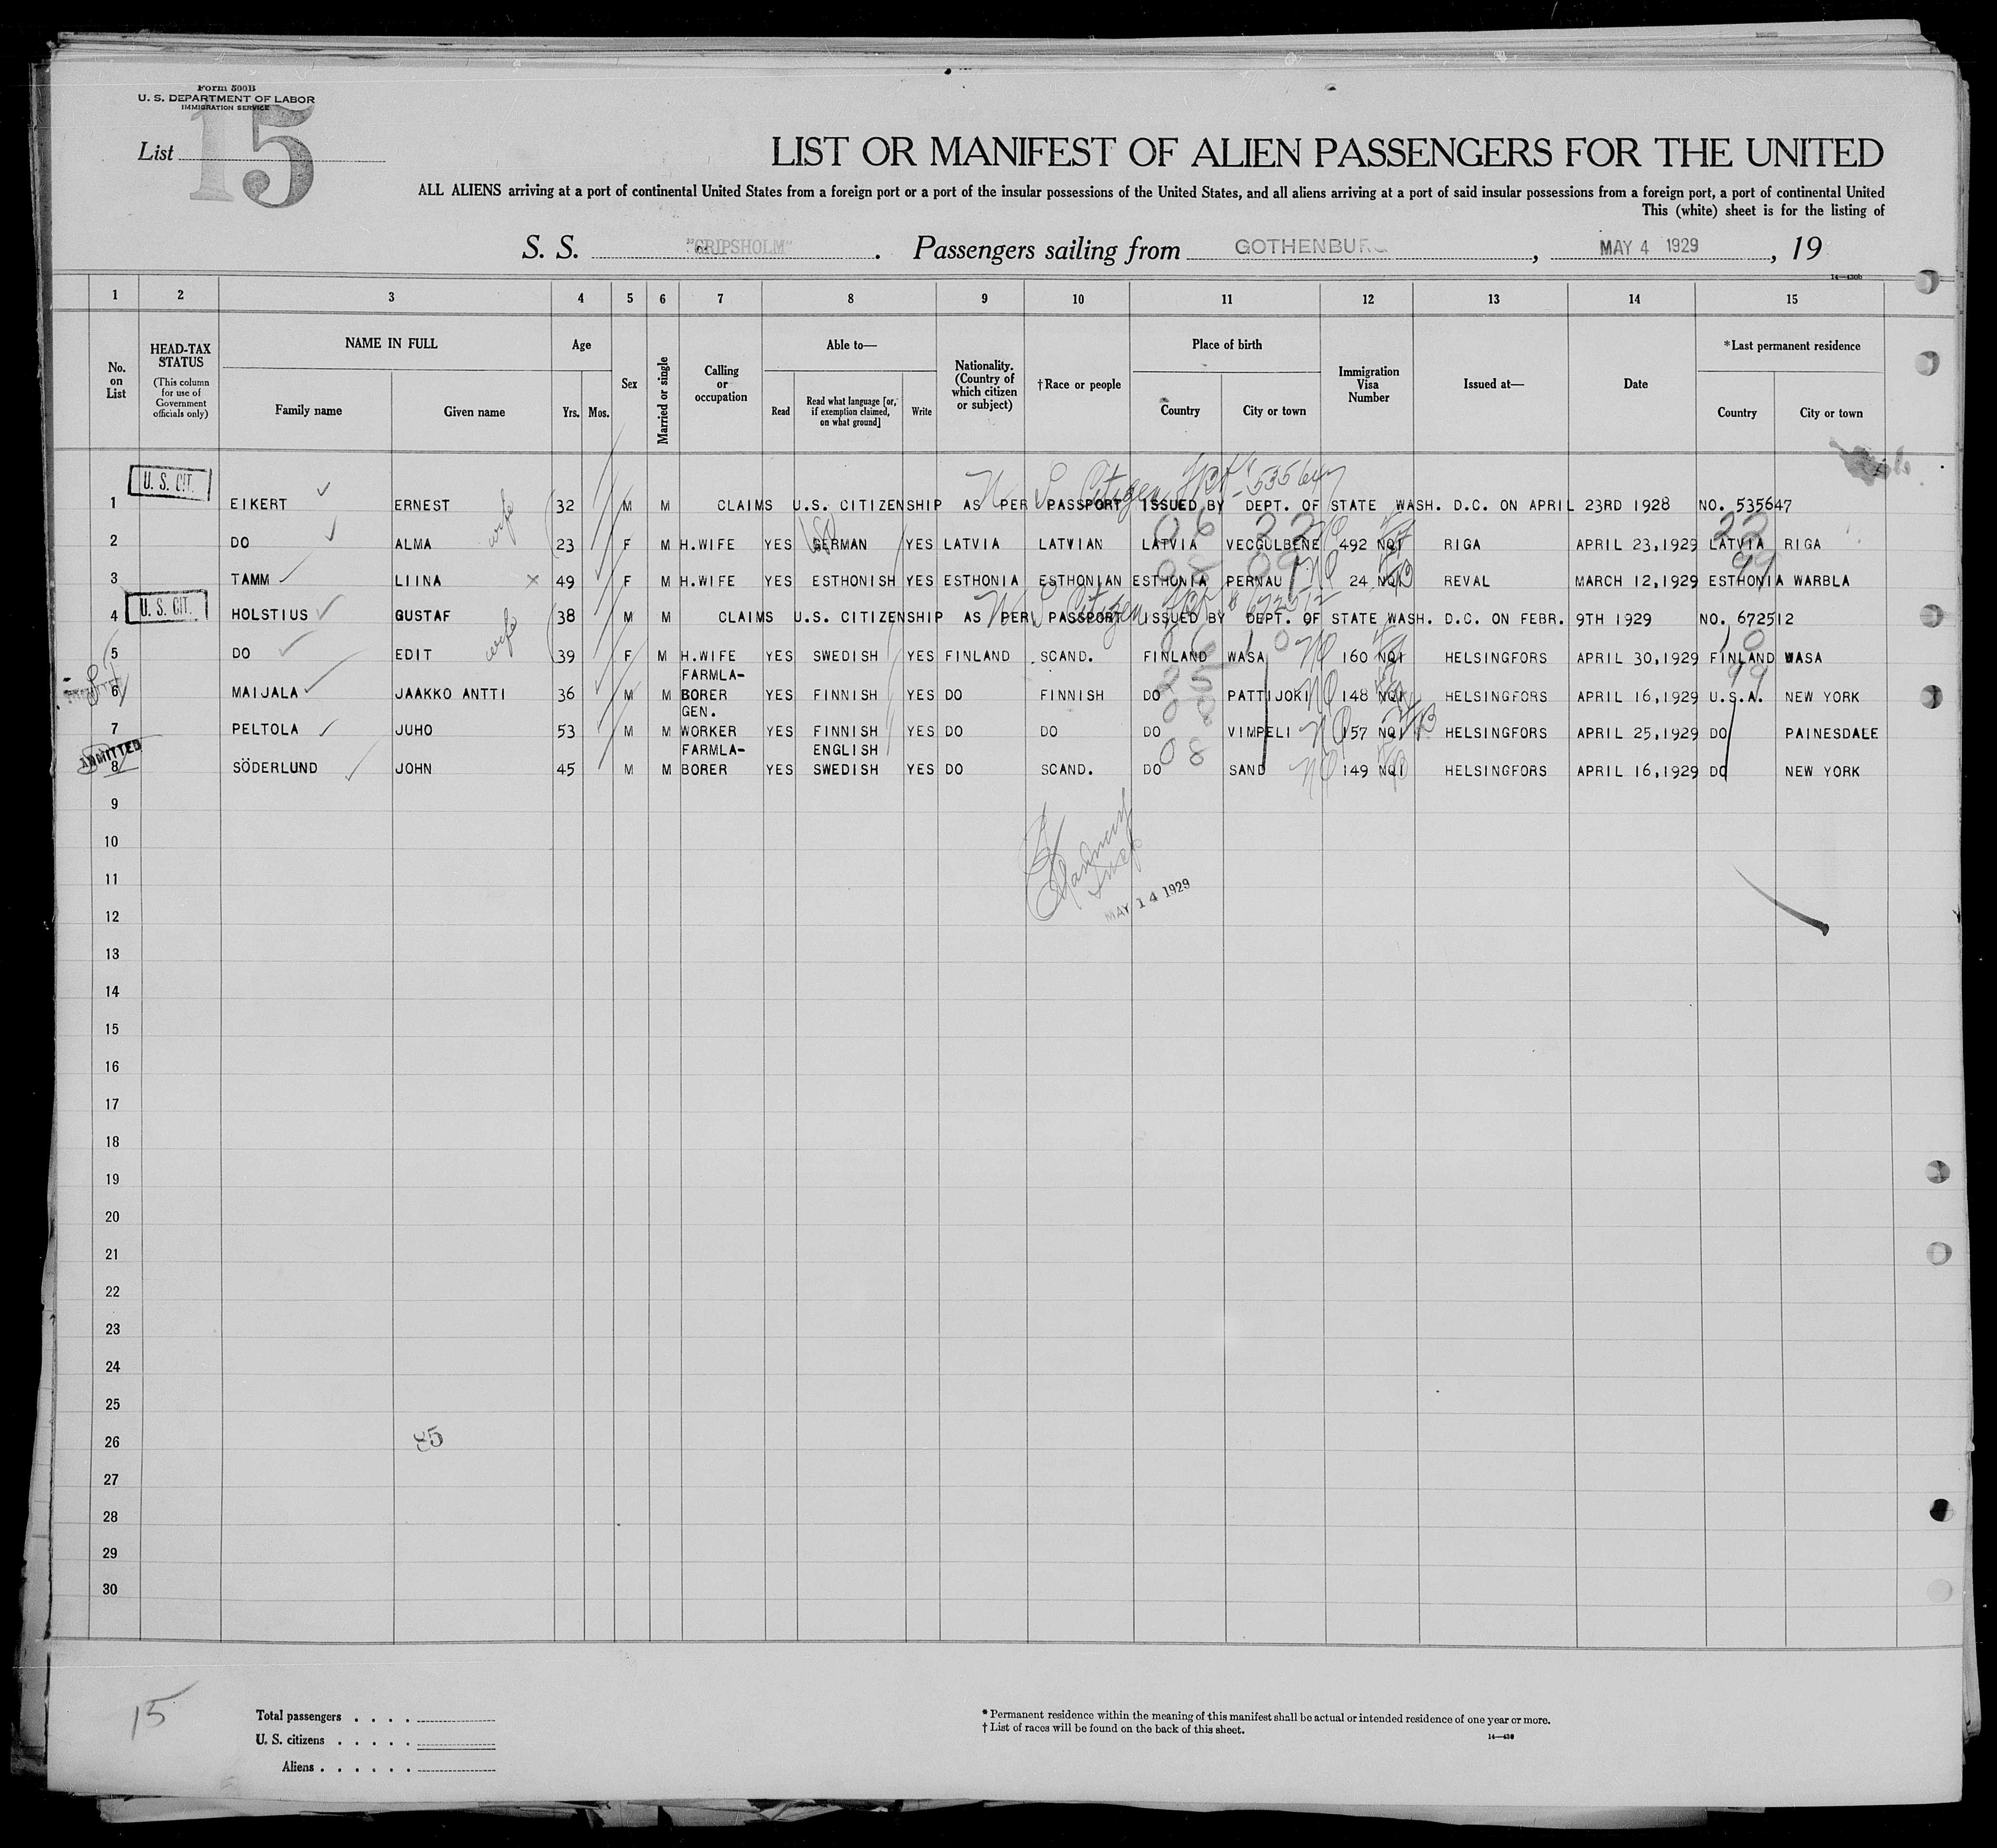 Form 500B
U. S. DEPARTMENT OF LABOR
IMMIGRATION SERVICE
List 15
LIST OR MANIFEST OF ALIEN PASSENGERS FOR THE UNITED
ALL ALIENS arriving at a port of continental United States from a foreign port or a port of the insular possessions of the United States, and all aliens arriving at a port of said insular possessions from a foreign port, a port of continental United
This (white) sheet is for the listing of
S. S. "GRIPSHOLM". Passengers sailing from GOTHENBURG, MAY 4 1929, 19
14—430b
1 2 3 4 5 6 7 8 9 10 11 12 13 14 15
No. on List
HEAD-TAX STATUS (This column for use of Government officials only)
NAME IN FULL
Family name
Given name
Age
Yrs. Mos.
Sex
Married or single
Calling or occupation
Able to—
Read
Read what language [or, if exemption claimed, on what ground]
Write
Nationality. (Country of which citizen or subject)
†Race or people
Place of birth
Country
City or town
Immigration Visa Number
Issued at—
Date
*Last permanent residence
Country
City or town
U. S. CIT. U S Citizen 535647
1 EIKERT ERNEST 32 M M CLAIMS U.S. CITIZENSHIP AS PER PASSPORT ISSUED BY DEPT. OF STATE WASH. D.C. ON APRIL 23RD 1928 NO. 535647
06 22 22
2 DO ALMA wife 23 F M H.WIFE YES GERMAN YES LATVIA LATVIAN LATVIA VECGULBENE 492 NQI RIGA APRIL 23,1929 LATVIA RIGA
3 TAMM LIINA × 49 F M H.WIFE YES ESTHONISH YES ESTHONIA ESTHONIAN ESTHONIA PERNAU 24 NQI REVAL MARCH 12,1929 ESTHONIA WARBLA
U. S. CIT. U S Citizen 672512
4 HOLSTIUS GUSTAF 38 M M CLAIMS U.S. CITIZENSHIP AS PER PASSPORT ISSUED BY DEPT. OF STATE WASH. D.C. ON FEBR. 9TH 1929 NO. 672512
10 10
5 DO EDIT wife 39 F M H.WIFE YES SWEDISH YES FINLAND SCAND. FINLAND WASA 160 NQI HELSINGFORS APRIL 30,1929 FINLAND WASA
FARMLA- 99
6 MAIJALA JAAKKO ANTTI 36 M M BORER YES FINNISH YES DO FINNISH DO PATTIJOKI 148 NQI HELSINGFORS APRIL 16,1929 U.S.A. NEW YORK
GEN.
7 PELTOLA JUHO 53 M M WORKER YES FINNISH YES DO DO DO VIMPELI 157 NQI HELSINGFORS APRIL 25,1929 DO PAINESDALE
ADMITTED FARMLA- ENGLISH 08
8 SÖDERLUND JOHN 45 M M BORER YES SWEDISH YES DO SCAND. DO SAND 149 NQI HELSINGFORS APRIL 16,1929 DO NEW YORK
9
10
11
MAY 14 1929
12
13
14
15
16
17
18
19
20
21
22
23
24
25
26
27
28
29
30
15
Total passengers . . . .
U. S. citizens . . . . .
Aliens . . . . . .
* Permanent residence within the meaning of this manifest shall be actual or intended residence of one year or more.
† List of races will be found on the back of this sheet.
14—430